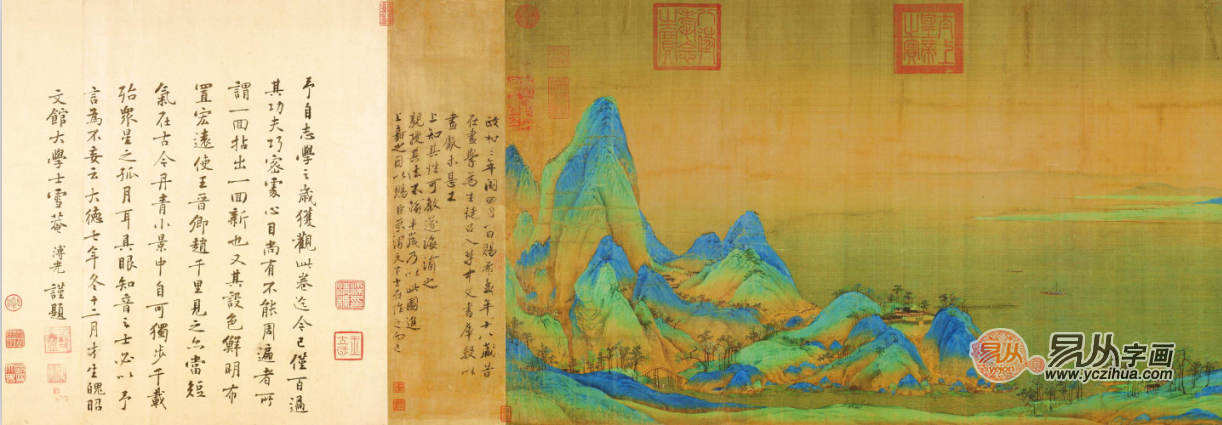 太上皇帝之寶
八徵耄念之寶
政和三年閏四月一日賜希孟年十八歲昔
在畫學為生徒召入禁中文書庫數以
畫獻未甚工
上知其性可教遂誨諭之
親授其法不踰半歲乃以此圖進
上嘉之因以賜臣京謂天下士在作之而已
予自志學之歲獲觀此卷迄今已僅百遍
其功夫巧密處心目尚有不能周遍者所
謂一面拈出一面新也又其設色鮮明布
置宏遠使王晉卿趙千里見之亦當短
氣在古今丹青小景中自可獨步千載
殆衆星之孤月耳具眼知音之士必以予
言為不妄云大德七年冬十二月才生魄昭
文館大學士雪菴溥光謹題
易从
yicong
易从字画
www.yczihua.com